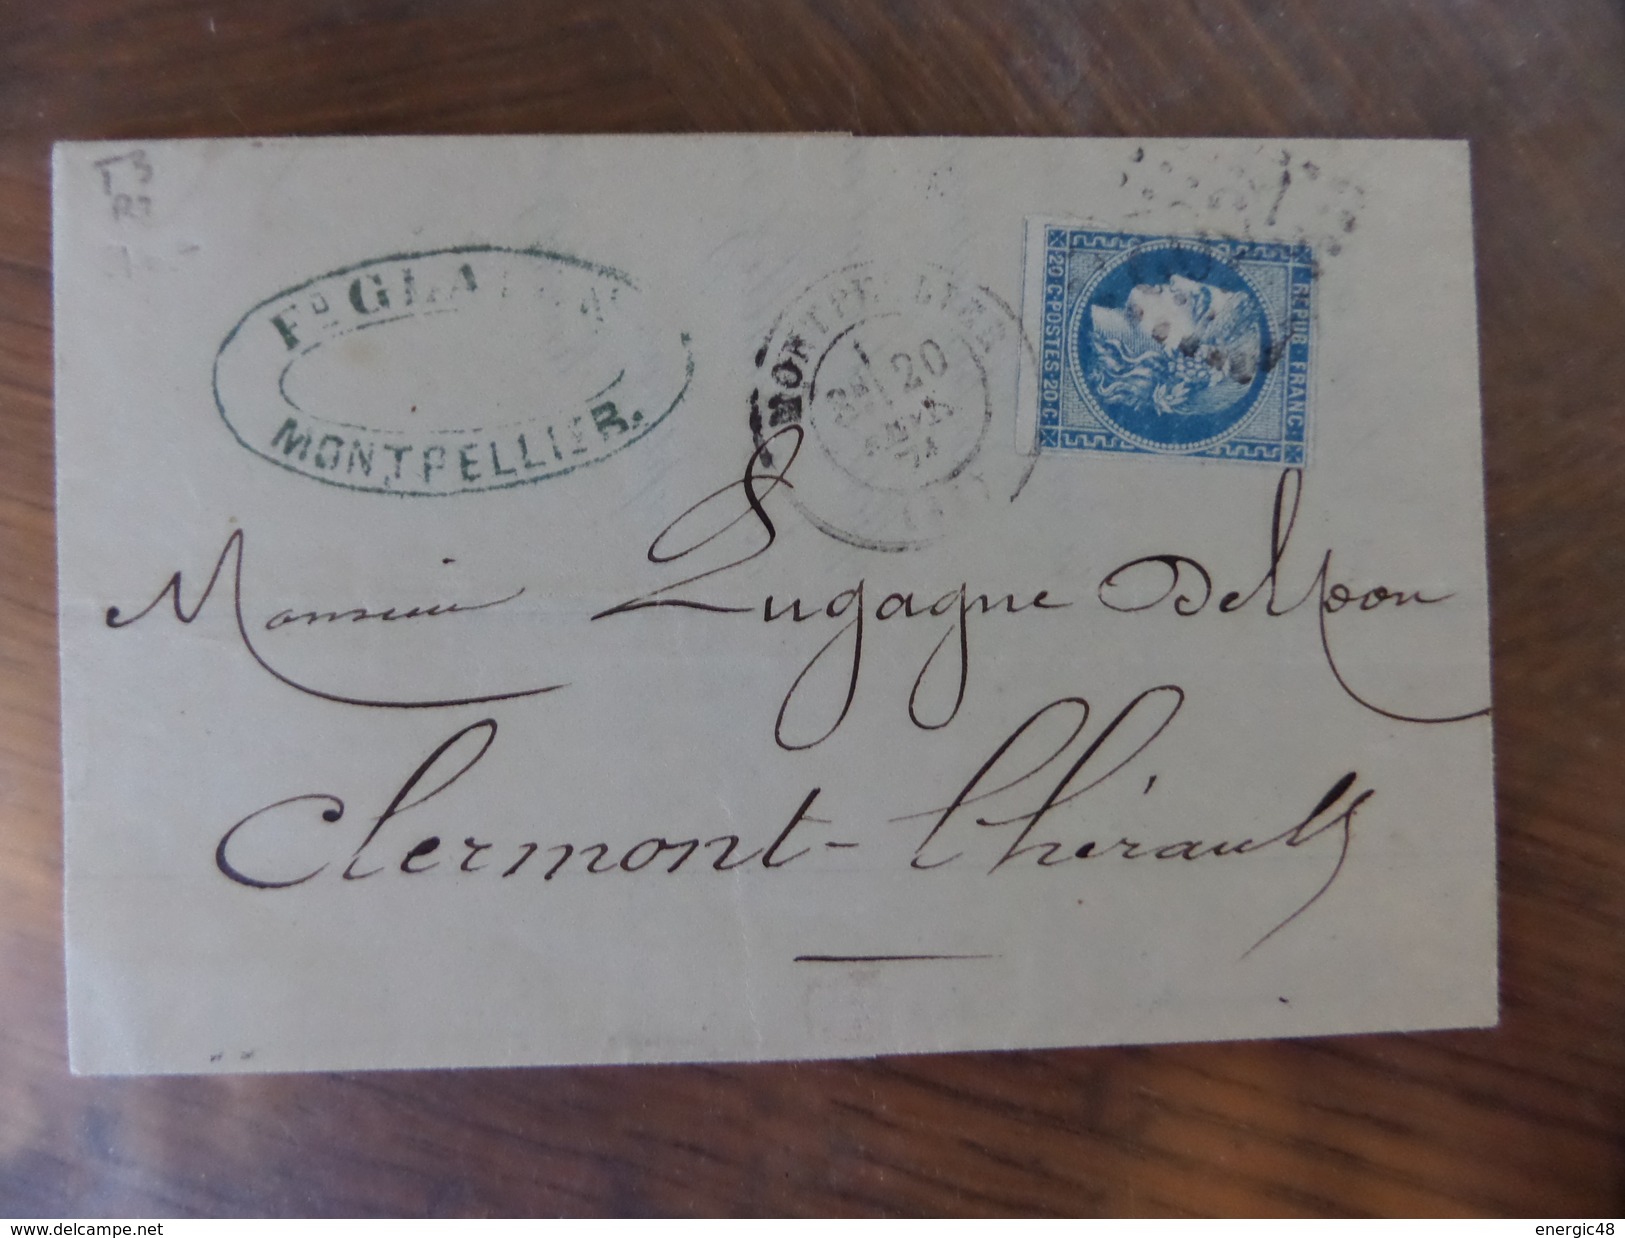 T3
R2
Fd GLA
MONTPELLIER.
MONTPELLIER
20
REPUB. FRANC.
20.C. POSTES. 20.C.
Monsieur Lugagne Delpon
Clermont-l'hérault
www.delcampe.net
energic48